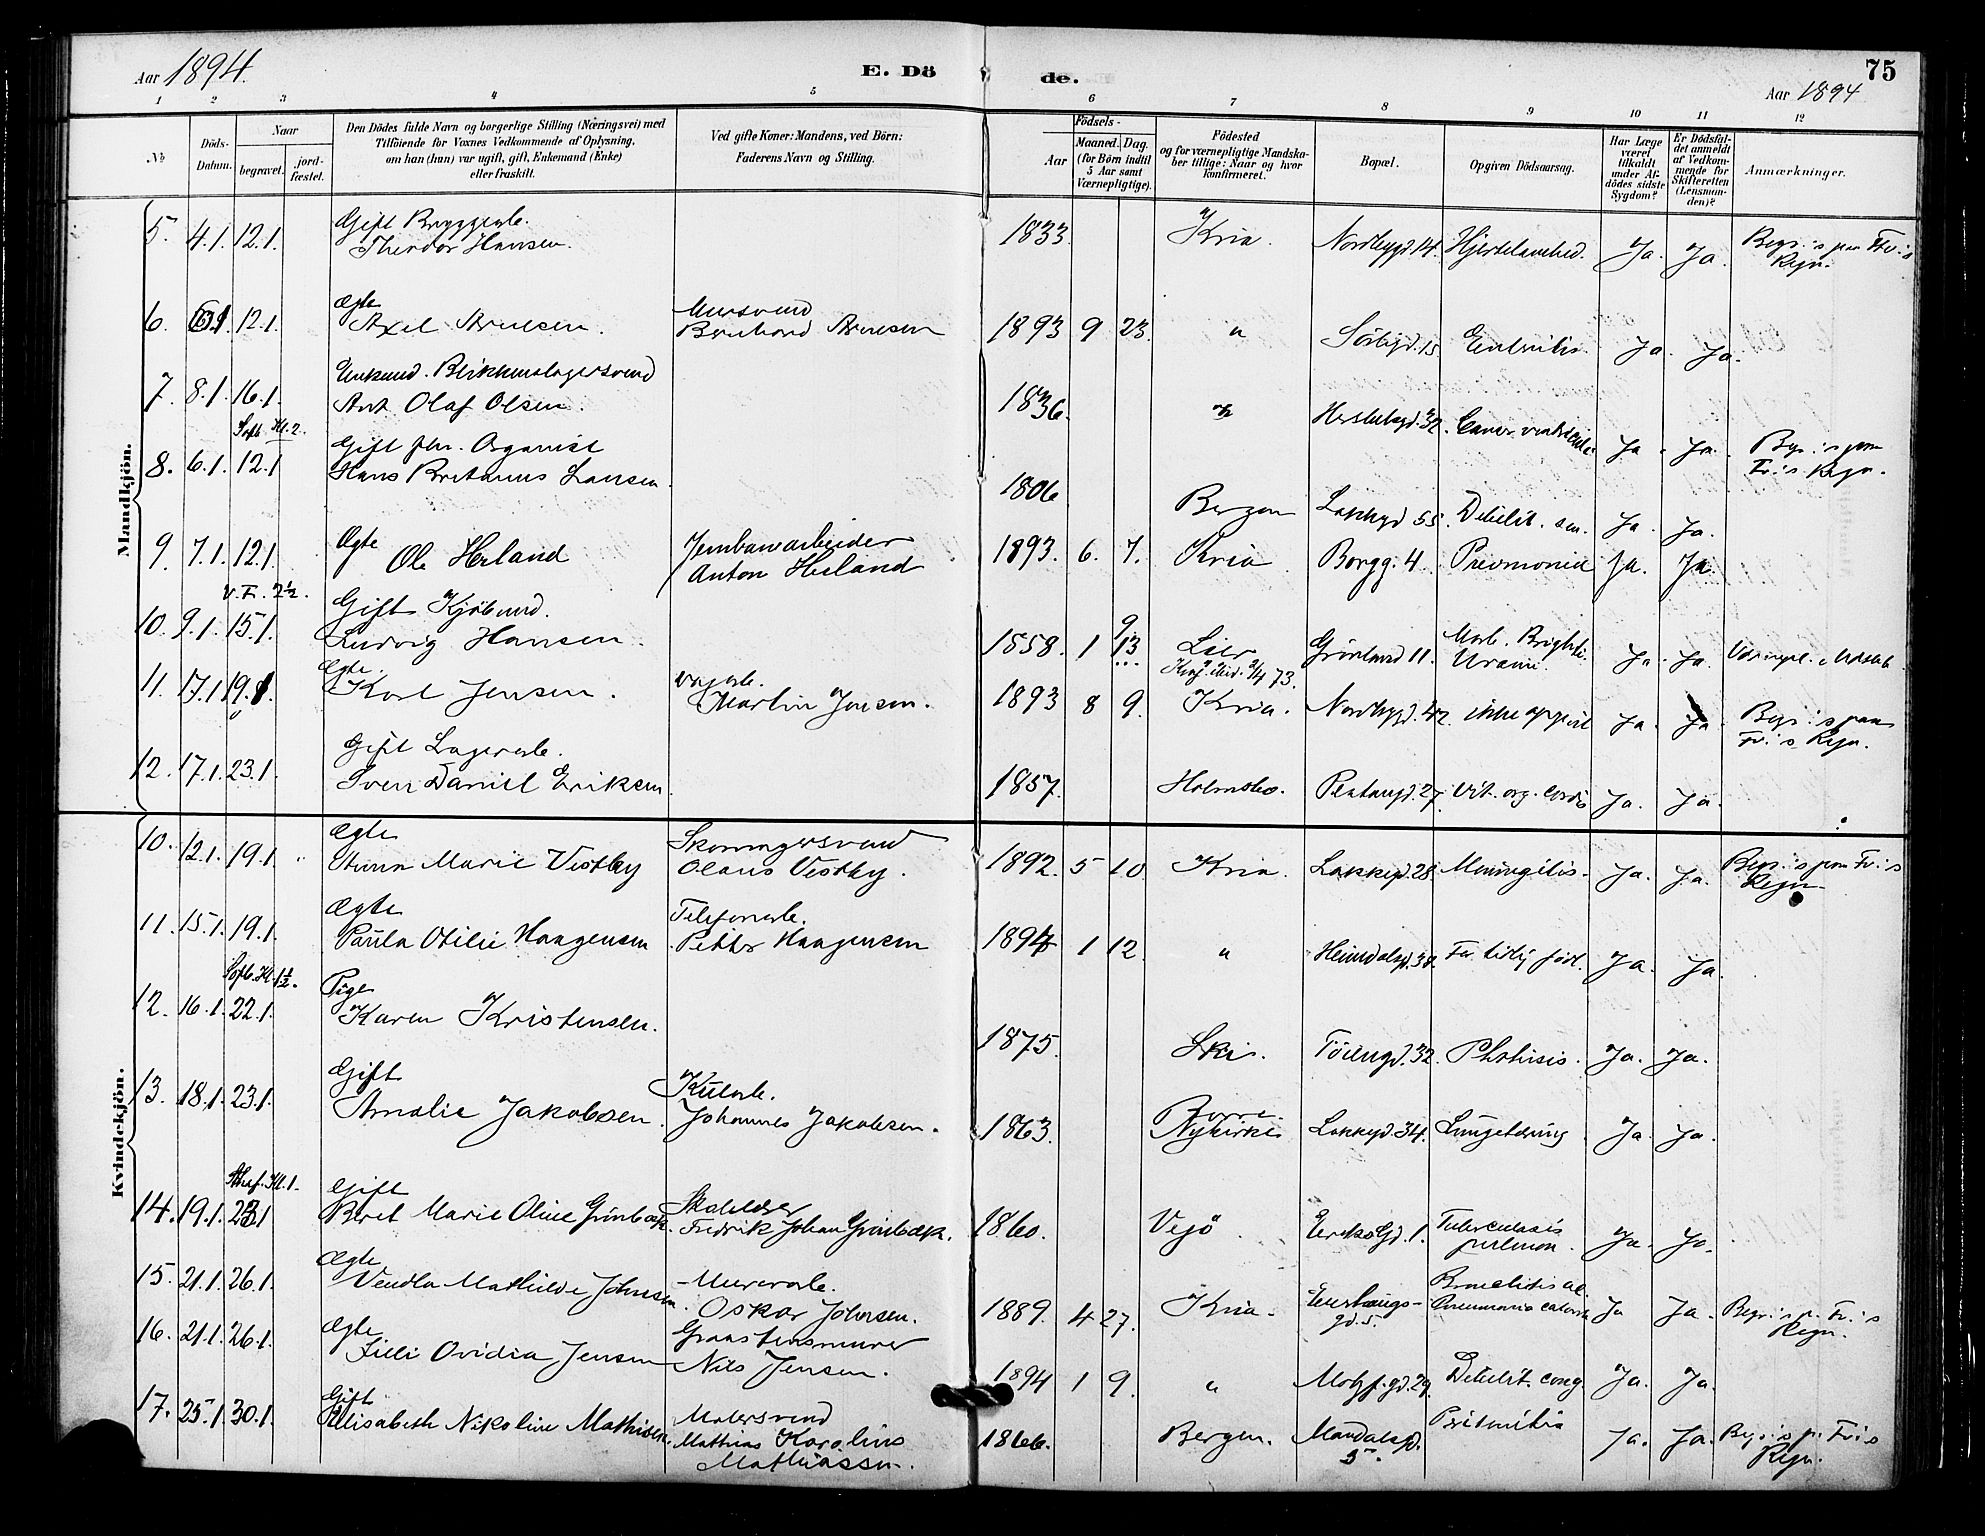 Aar 1894.
E. Dö
de.
75
Aar 1894
1 2 3 4 5 6 7 8 9 10 11 12
No
Döds-
Datum.
Naar
begravet.
jord-
fæstet.
Den Dödes fulde Navn og borgerlige Stilling (Næringsvei) med
Tilföiende for Voxnes Vedkommende af Oplysning,
om han (hun) var ugift, gift, Enkemand (Enke)
eller fraskilt.
Ved gifte Koner: Mandens, ved Börn:
Faderens Navn og Stilling.
Födsels-
Aar
Maaned. Dag.
(for Börn indtil
5 Aar samt
Værnepligtige).
Födested
og for værnepligtige Mandska-
ber tillige: Naar og hvor
konfirmeret.
Bopæl.
Opgiven Dödsaarsag.
Har Læge
været
tilkaldt
under Af-
dödes sidste
Sygdom?
Er Dödsfal-
det anmeldt
af Vedkom-
mende for
Skifteretten
(Lensman-
den)?
Anmærkninger.
Mandkjön.
5. 4.1. 12.1. Gift Bryggerarb.
Theodor Hansen. 1833. Kria. Nordbygd. 14. Hjertelamhed. Ja. Ja. Begr. s paa Fv. s
Regn.
6. 12.1. Ægte
Axel Arnesen. Mursvend
Bernhard Arnesen 1893 9 23. " Sörbygd. 15 Enteritis. Ja. Ja.
7. 8.1. 16.1. Enkemd. Blikkenslagersvend
Ant. Olaf Olsen. 1836. " Herslebsgd. 32. Cancer ventriculi Ja. Ja. Begr. s paa
Fv. s. Regn.
Sofb. Kl. 2.
8. 6.1. 12.1 Gift fhv. Organist
Hans Britanus Lansen. 1806 Bergen Lakkegd 55. Debilit. sen. Ja. Ja.
9. 7.1. 12.1. Ægte
Ole Heland Jernbanearbeider
Anton Heland 1893. 6. 7. Kria Borgg. 4. Pneumonia Ja. Ja.
V. F. 2½
10. 9.1. 15.1. Gift Kjöbmd.
Ludvig Hansen. 1858. 1 13 Lier
Konf. 73. Grönland 11. Morb. Brightii.
Uræmi. Ja. Ja.
11. 17.1 19.1 Ægte.
Karl Jensen. arb.
Martin Jensen. 1893 8 9. Kria. Nordbygd. 42. ikke opgivet Ja. Ja. Begr. s paa
Fv. s. Regn.
12. 17.1. 23.1. Gift Lagerarb.
Sven Daniel Eriksen. 1857. Holmsbo. Platougd. 27. Vit. org. cordis Ja. Ja.
Kvindekjön.
10. 12.1. 19.1. Ægte
Anna Marie Vestby Skomagersvend
Olaus Vestby. 1892. 5 10. Kria. Lakkegd. 28. Meningitis. Ja. Ja. Begr. s paa Fv. s
Regn
11. 15.1. 19.1. Ægte
Paula Otilie Haagensen Telefonarb.
Petter Haagensen 1894 1 12. " Heimdalsgd. 38. For tidlig föd. Ja. Ja.
Sofb. Kl. 1½.
12. 16.1. 22.1. Pige
Karen Kristensen. 1875. Ski. Töiengd. 32. Phthisis. Ja. Ja.
13. 18.1. 23.1. Gift
Amalie Jakobsen. Kularb.
Johannes Jakobsen. 1863. Borre.
Nykirke Lakkegd. 34. Lungetæring Ja. Ja.
Kl. 1.
14. 19.1. 23.1 Gift
Beret Marie Oline Grönbæk. Skolelærer
Fredrik Johan Grönbæk. 1860. Vejö Eriksgd. 1. Tuberculosis
pulmon. Ja. Ja.
15. 21.1. 26.1. Ægte
Vendla Mathilde Johnsen. Murerarb.
Oskar Johnsen. 1889. 4 27. Kria. Enerhaugs-
gd. 5. Bronchitis ac.
Pneumonia catarrh. Ja Ja. Begr. s p. Fv. s
Regn.
16. 21.1. 26.1. Ægte
Lilli Ovidia Jensen Graastensmurer
Nils Jensen. 1894 1 9. " Motzf. gd. 29. Debilit. cong. Ja. Ja.
17. 25.1. 30.1. Gift
Elisabeth Nikoline Mathisen. Malersvend
Mathias Karolius
Mathiassen. 1866. Bergen. Mandalsgd.
5. Peritonitis Ja. Ja. Begr. s p. Fv. s
Regn.